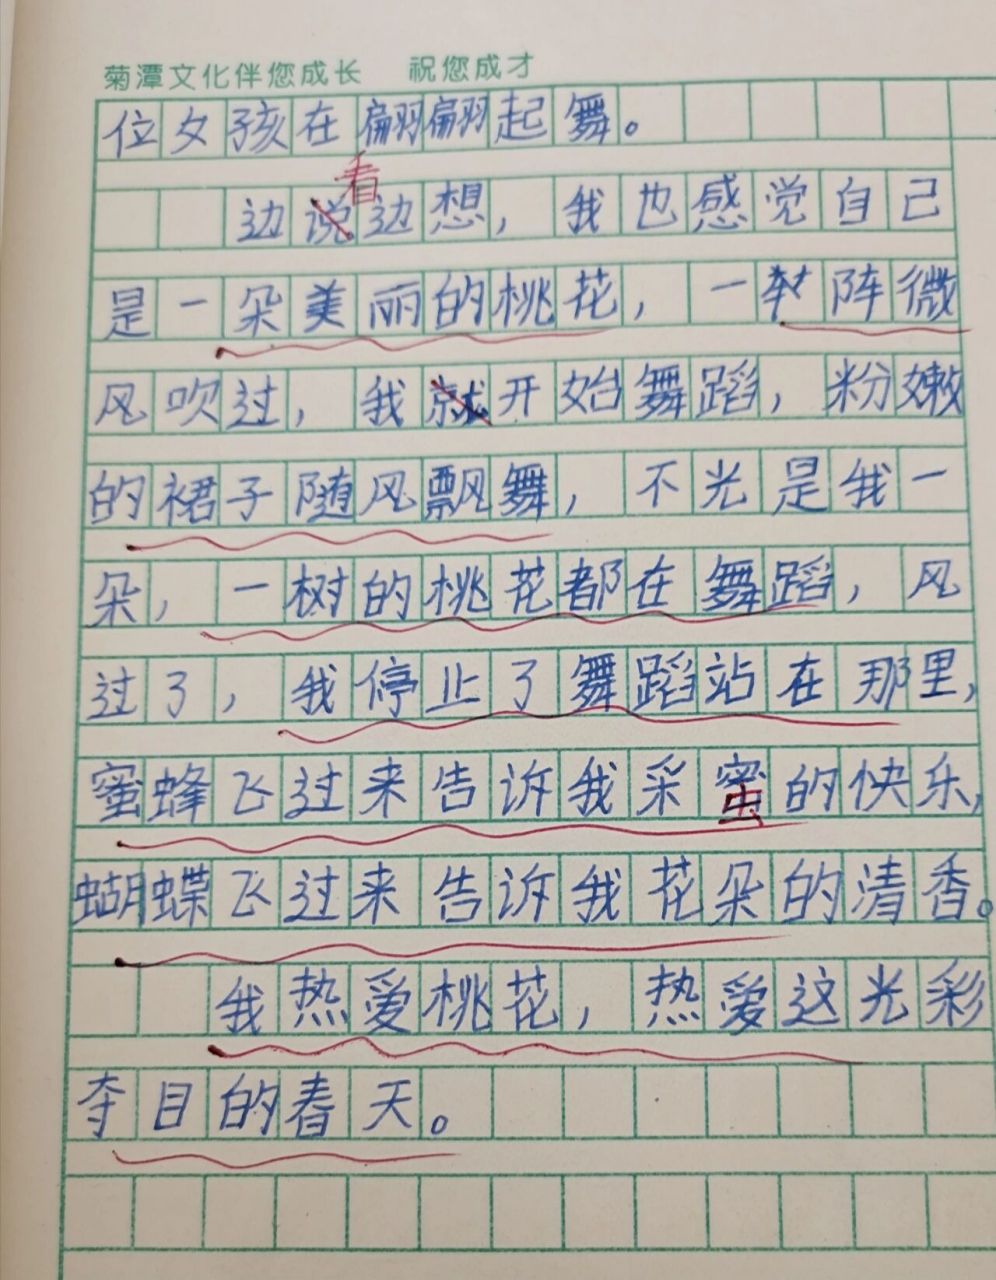 菊潭文化伴您成长 祝您成才
位女孩在翩翩起舞。
看
边说边想，我也感觉自己
是一朵美丽的桃花，一阵微
风吹过，我就开始舞蹈，粉嫩
的裙子随风飘舞，不光是我一
朵，一树的桃花都在舞蹈，风
过了，我停止了舞蹈站在那里，
蜜蜂飞过来告诉我采蜜的快乐，
蝴蝶飞过来告诉我花朵的清香。
我热爱桃花，热爱这光彩
夺目的春天。